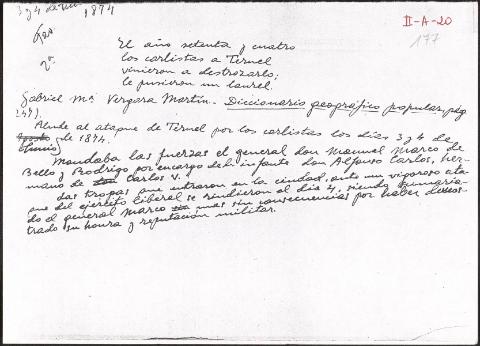 3 y 4 de
1874
II-A-20
177
El año setenta y cuatro
los carlistas a Teruel
vinieron a destrozarlo;
le pusieron un laurel.
Gabriel Mª Vergara Martín. Diccionario geográfico popular, pág
249).
Alude al ataque de Teruel por los carlistas los días 3 y 4 de
Agosto de 1874.
(Junio)
Mandaba las fuerzas el general don Manuel Marco de
Bello y Rodrigo por encargo de l infante don Alfonso Carlos, her-
mano de Carlos V.
das tropas que entraron en la ciudad, ante un vigoroso ata-
que del ejército liberal se rindieron al día 4, siendo
do el general Marco mas sin consecuencias por haber demos-
trado su honra y reputación militar.